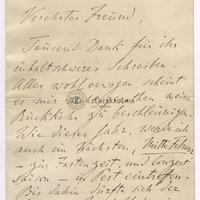 Verehrter Freund,
Tausend Dank für ihr
inhaltschweres Schreiben.
Alles wohl erwogen, scheint
es mir meine
Rückkehr zu beschleunigen.
Wie dieses Jahr, werde ich
auch im Nächsten, Mitte Februar
– zur Fastenzeit, und Concert
saison – in Pest eintreffen.
Bis dahin dürfte sich der